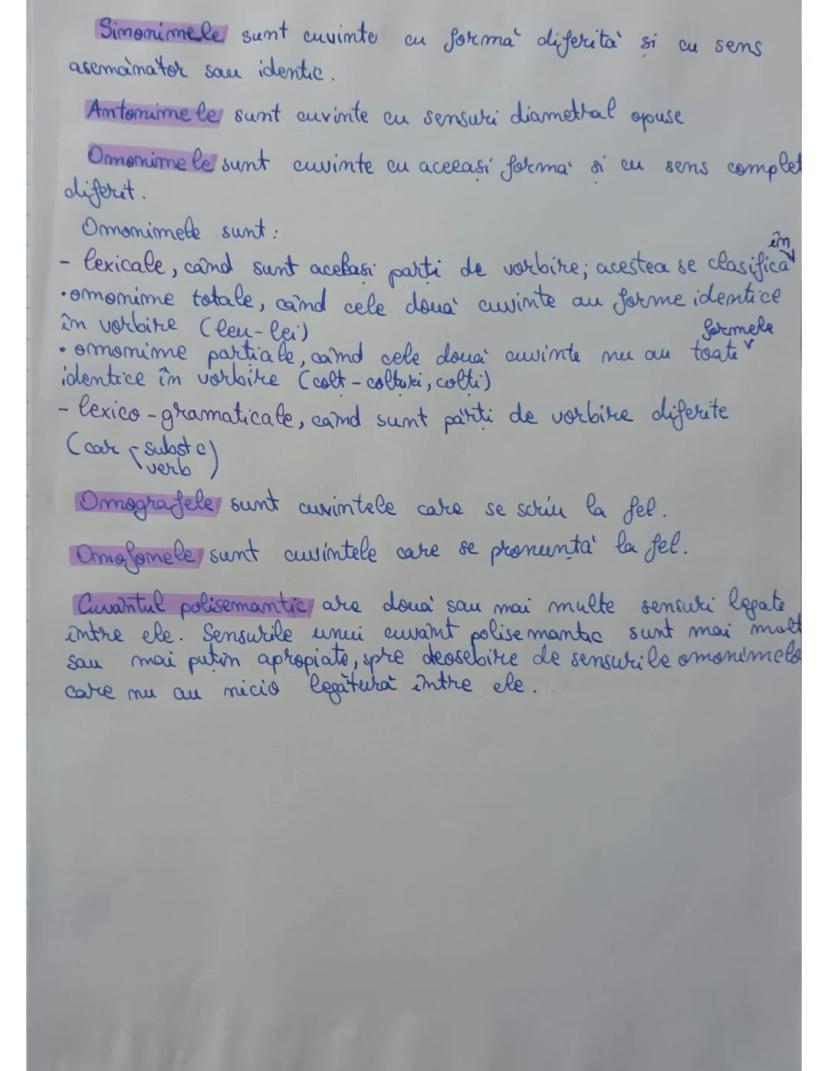 Sinonimele sunt cuvinte cu formă diferită și cu sens
asemănător sau identic.
Antonimele sunt cuvinte cu sensuri diametral opuse
Omonimele sunt cuvinte cu aceeași formă și cu sens complet
diferit.
Omonimele sunt:
- lexicale, când sunt aceleași părți de vorbire; acestea se clasifică în
• omonime totale, când cele două cuvinte au forme identice
în vorbire (leu-lei)
• omonime parțiale, când cele două cuvinte nu au toate formele
identice în vorbire (colt - colturi, colți)
- lexico-gramaticale, când sunt părți de vorbire diferite
(car subst
verb)
Omografele sunt cuvintele care se scriu la fel.
Omofonele sunt cuvintele care se pronunță la fel.
Cuvântul polisemantic are două sau mai multe sensuri legate
între ele. Sensurile unui cuvânt polisemantic sunt mai mult
sau mai puțin apropiate, spre deosebire de sensurile omonimelo
care nu au nicio legătură între ele.